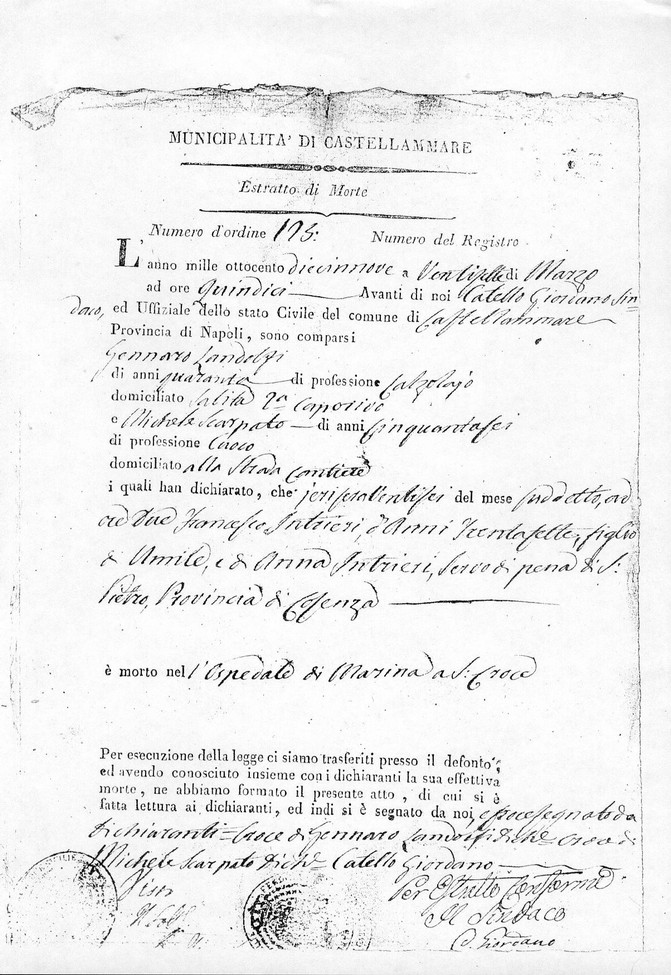 MUNICIPALITA' DI CASTELLAMMARE
Estratto di Morte
Numero d'ordine 195: Numero del Registro
L'anno mille ottocento diecinnove a Ventisette di Marzo
ad ore quindici Avanti di noi Catello Giordano Sin=
daco, ed Uffiziale dello stato Civile del comune di Castellammare
Provincia di Napoli, sono comparsi
Gennaro Landolfi
di anni quaranta di professione Calzolajo
domiciliato Salita
e Michele Scarpato di anni Cinquantasei
di professione Cuoco
domiciliato alla Strada Cantiere
i quali han dichiarato, che jeri ventisei del mese suddetto, ad
ore due Francesco Intrieri, d'Anni Trentasette, figlio
di e di Anna Intrieri, servo di pena di S:
Pietro, Provincia di Cosenza
è morto nell'Ospedale di Marina a S: Croce
Per esecuzione della legge ci siamo trasferiti presso il defonto,
ed avendo conosciuto insieme con i dichiaranti la sua effettiva
morte, ne abbiamo formato il presente atto, di cui si è
fatta lettura ai dichiaranti, ed indi si è segnato da noi, e crocesegnato da
dichiaranti = Croce di Gennaro Landolfi Croce di
Michele Scarpato Catello Giordano
Visto
Per Estratto Conforme
Il Sindaco
C. Giordano